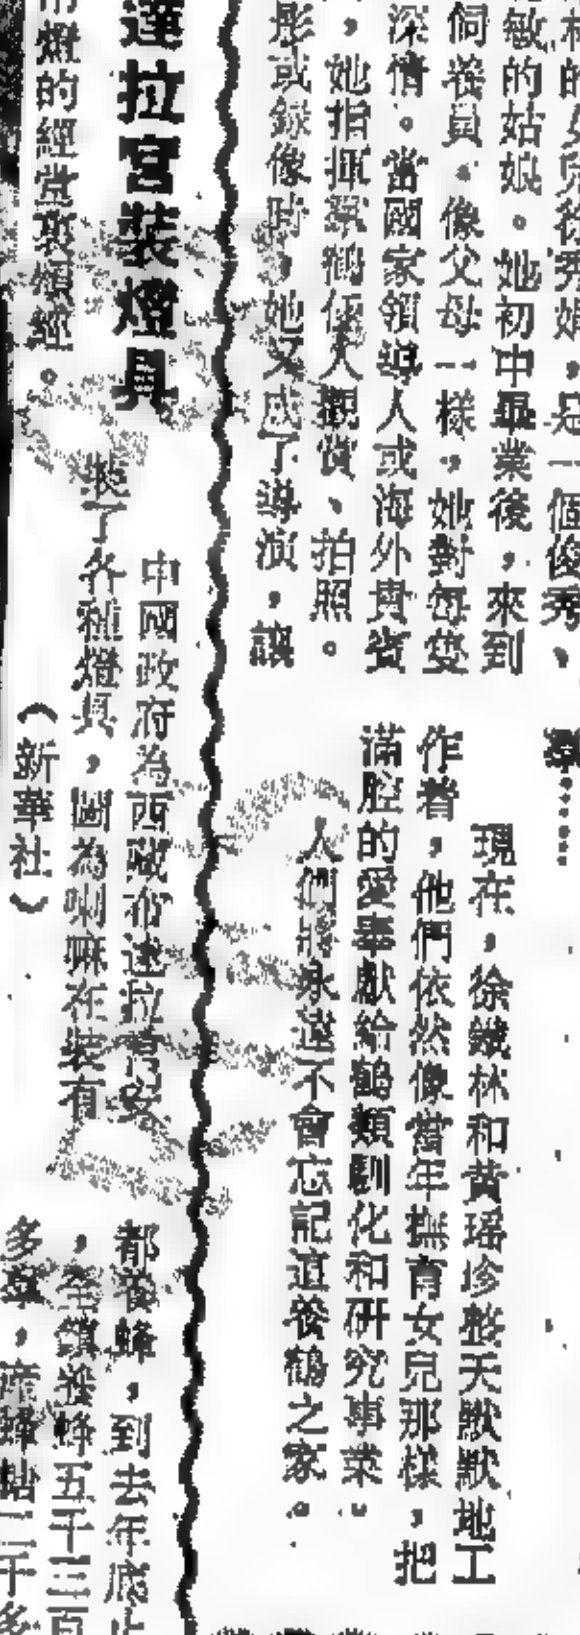 敏的姑娘。她初中畢業後，來到
飼養員。像父母一樣，她對每隻
深情。當國家領導人或海外貴賓
，她指揮羣鶴供人觀賞、拍照。
或錄像時，她又成了導演，讓
現在，徐鐵林和黃瑤珍整天默默地工
作着，他們依然像當年撫育女兒那樣，把
滿腔的愛奉獻給鶴類馴化和研究事業。
人們將永遠不會忘記這養鶴之家。
達拉宮裝燈具
中國政府為西藏布達拉宮安
裝了各種燈具，圖為喇嘛在裝有
燈的經堂裏頌經。
（新華社）
都養蜂，到去年底
，全鎮養蜂五千三百
多羣，產蜂